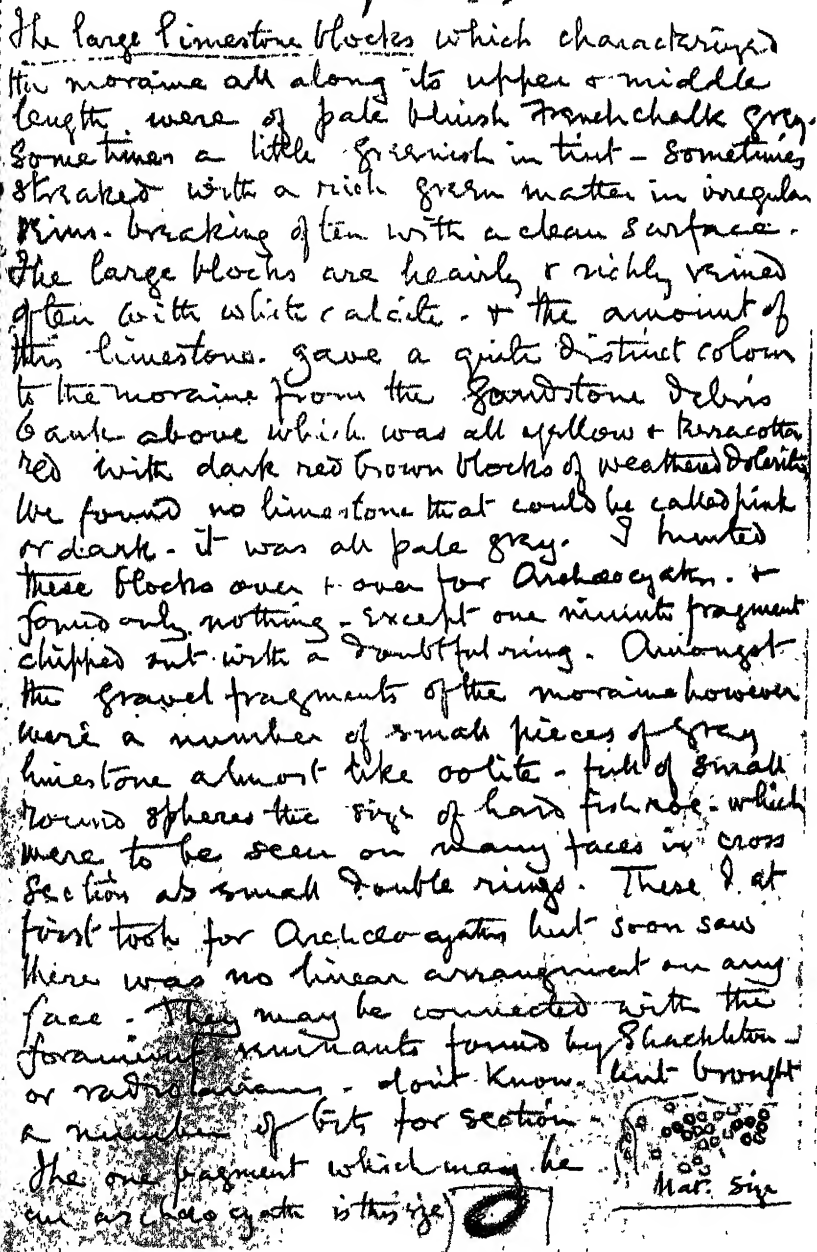 The large limestone blocks which characterized
the moraine all along its upper & middle
length were of pale bluish French chalk grey.
Sometimes a little greenish in tint - sometimes
streaked with a rich green matter in irregular
veins. breaking often with a clean surface.
The large blocks are heavily & richly veined
often with white calcite. & the amount of
this limestone. gave a quite distinct colour
to the moraine from the Sandstone debris
bank above which was all yellow & terracotta
red with dark red brown blocks of weathered dolerite
We found no limestone that could be called pink
or dark - it was all pale gray. I hunted
these blocks over & over for Archæocyaths. &
found only nothing - except one minute fragment
chipped out with a doubtful ring. Amongst
the gravel fragments of the moraine however
were a number of small pieces of gray
limestone almost like oolite - full of small
round spheres the size of hard fish roe - which
were to be seen on many faces in cross
section as small double rings. These I at
first took for Archæocyaths but soon saw
there was no linear arrangment on any
face. They may be connected with the
foraminif. remnants found by Shackleton -
or radiolarians. - don't know. but brought
a number of bits for section -
The one fragment which may be
an archæocyath is this size
Nat. Size